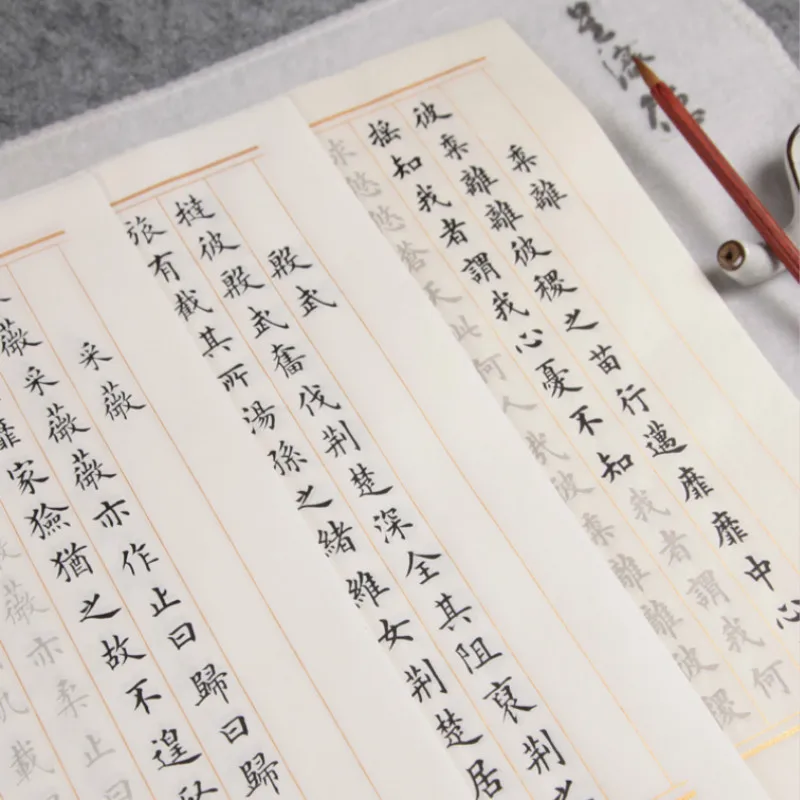 黍離
彼黍離離彼稷之苗行邁靡靡中心
搖知我者謂我心憂不知我者謂我何
求悠悠蒼天此何人哉彼黍離離彼稷
殷武
撻彼殷武奮伐荊楚深全其阻裒荊之
張有截其所湯孫之緒維女荊楚居
采薇
薇采薇薇亦作止曰歸曰歸
靡家獫猶之故不遑
薇亦柔止曰
載